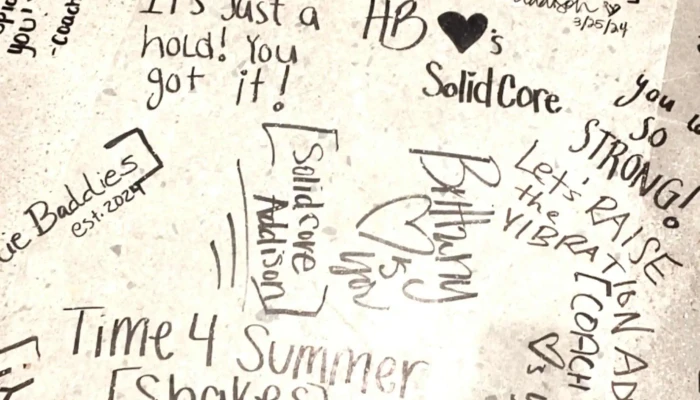 you!
-coach
It's Just a
hold! You
got it!
HB ♥'s
SolidCore
3/25/24
you
SO
STRONG!
Let's RAISE
the
VIBRATION
Baddies]
est. 2024
[Solidcore
Addison]
Brittany
♡'s
you
[COACH
Time 4 Summer
[Shakes]